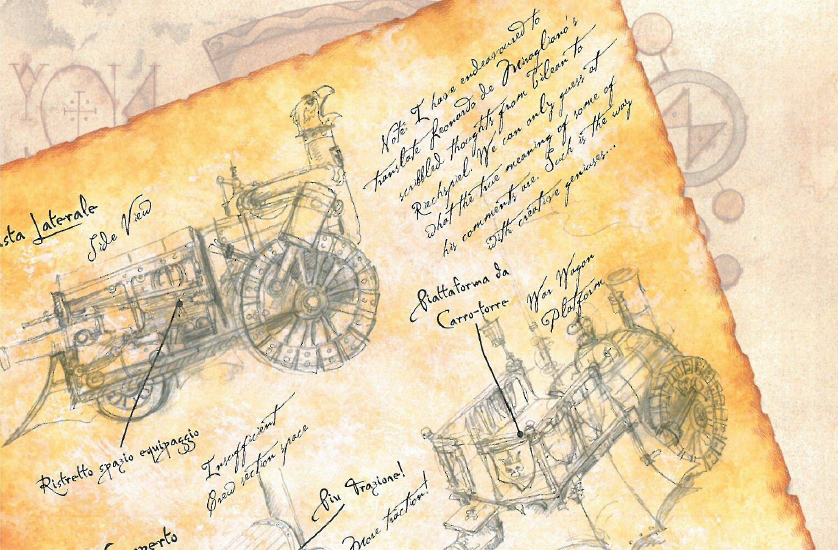 Note: I have endeavoured to
translate Leonardo de Miragliano's
scribbled thoughts from Tilean to
Riechspiel. We can only guess at
what the true meaning of some of
his comments are. Such is the way
with creative geniuses...
sta Laterale
Side View
Piattaforma da
Carro-torre
War Wagon
Platform
Ristretto spazio equipaggio
Insufficient
Crew section space
Piu Trazione!
More traction!